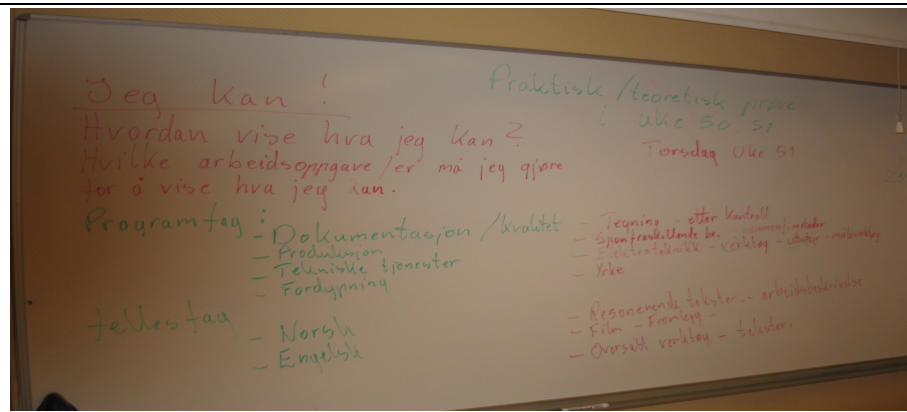 Jeg kan !
Hvordan vise hva jeg kan?
Hvilke arbeidsoppgave/er må jeg gjøre
for å vise hva jeg kan.
Praktisk/teoretisk prøve
i uke 50, 51
Torsdag Uke 51
Programfag :
- Dokumentasjon/kvalitet
- Produksjon
- Tekniske tjenester
- Fordypning
- Tegning - etter kontroll
- Sponfraskillende be.
- Elektroteknikk - verktøy - utstyr - måleverktøy
- Yrke
fellesfag
- Norsk
- Engelsk
- Resonerende tekster - arbeidsbeskrivelse
- Film - Fremlegg -
- Oversatt verktøy - tekster.